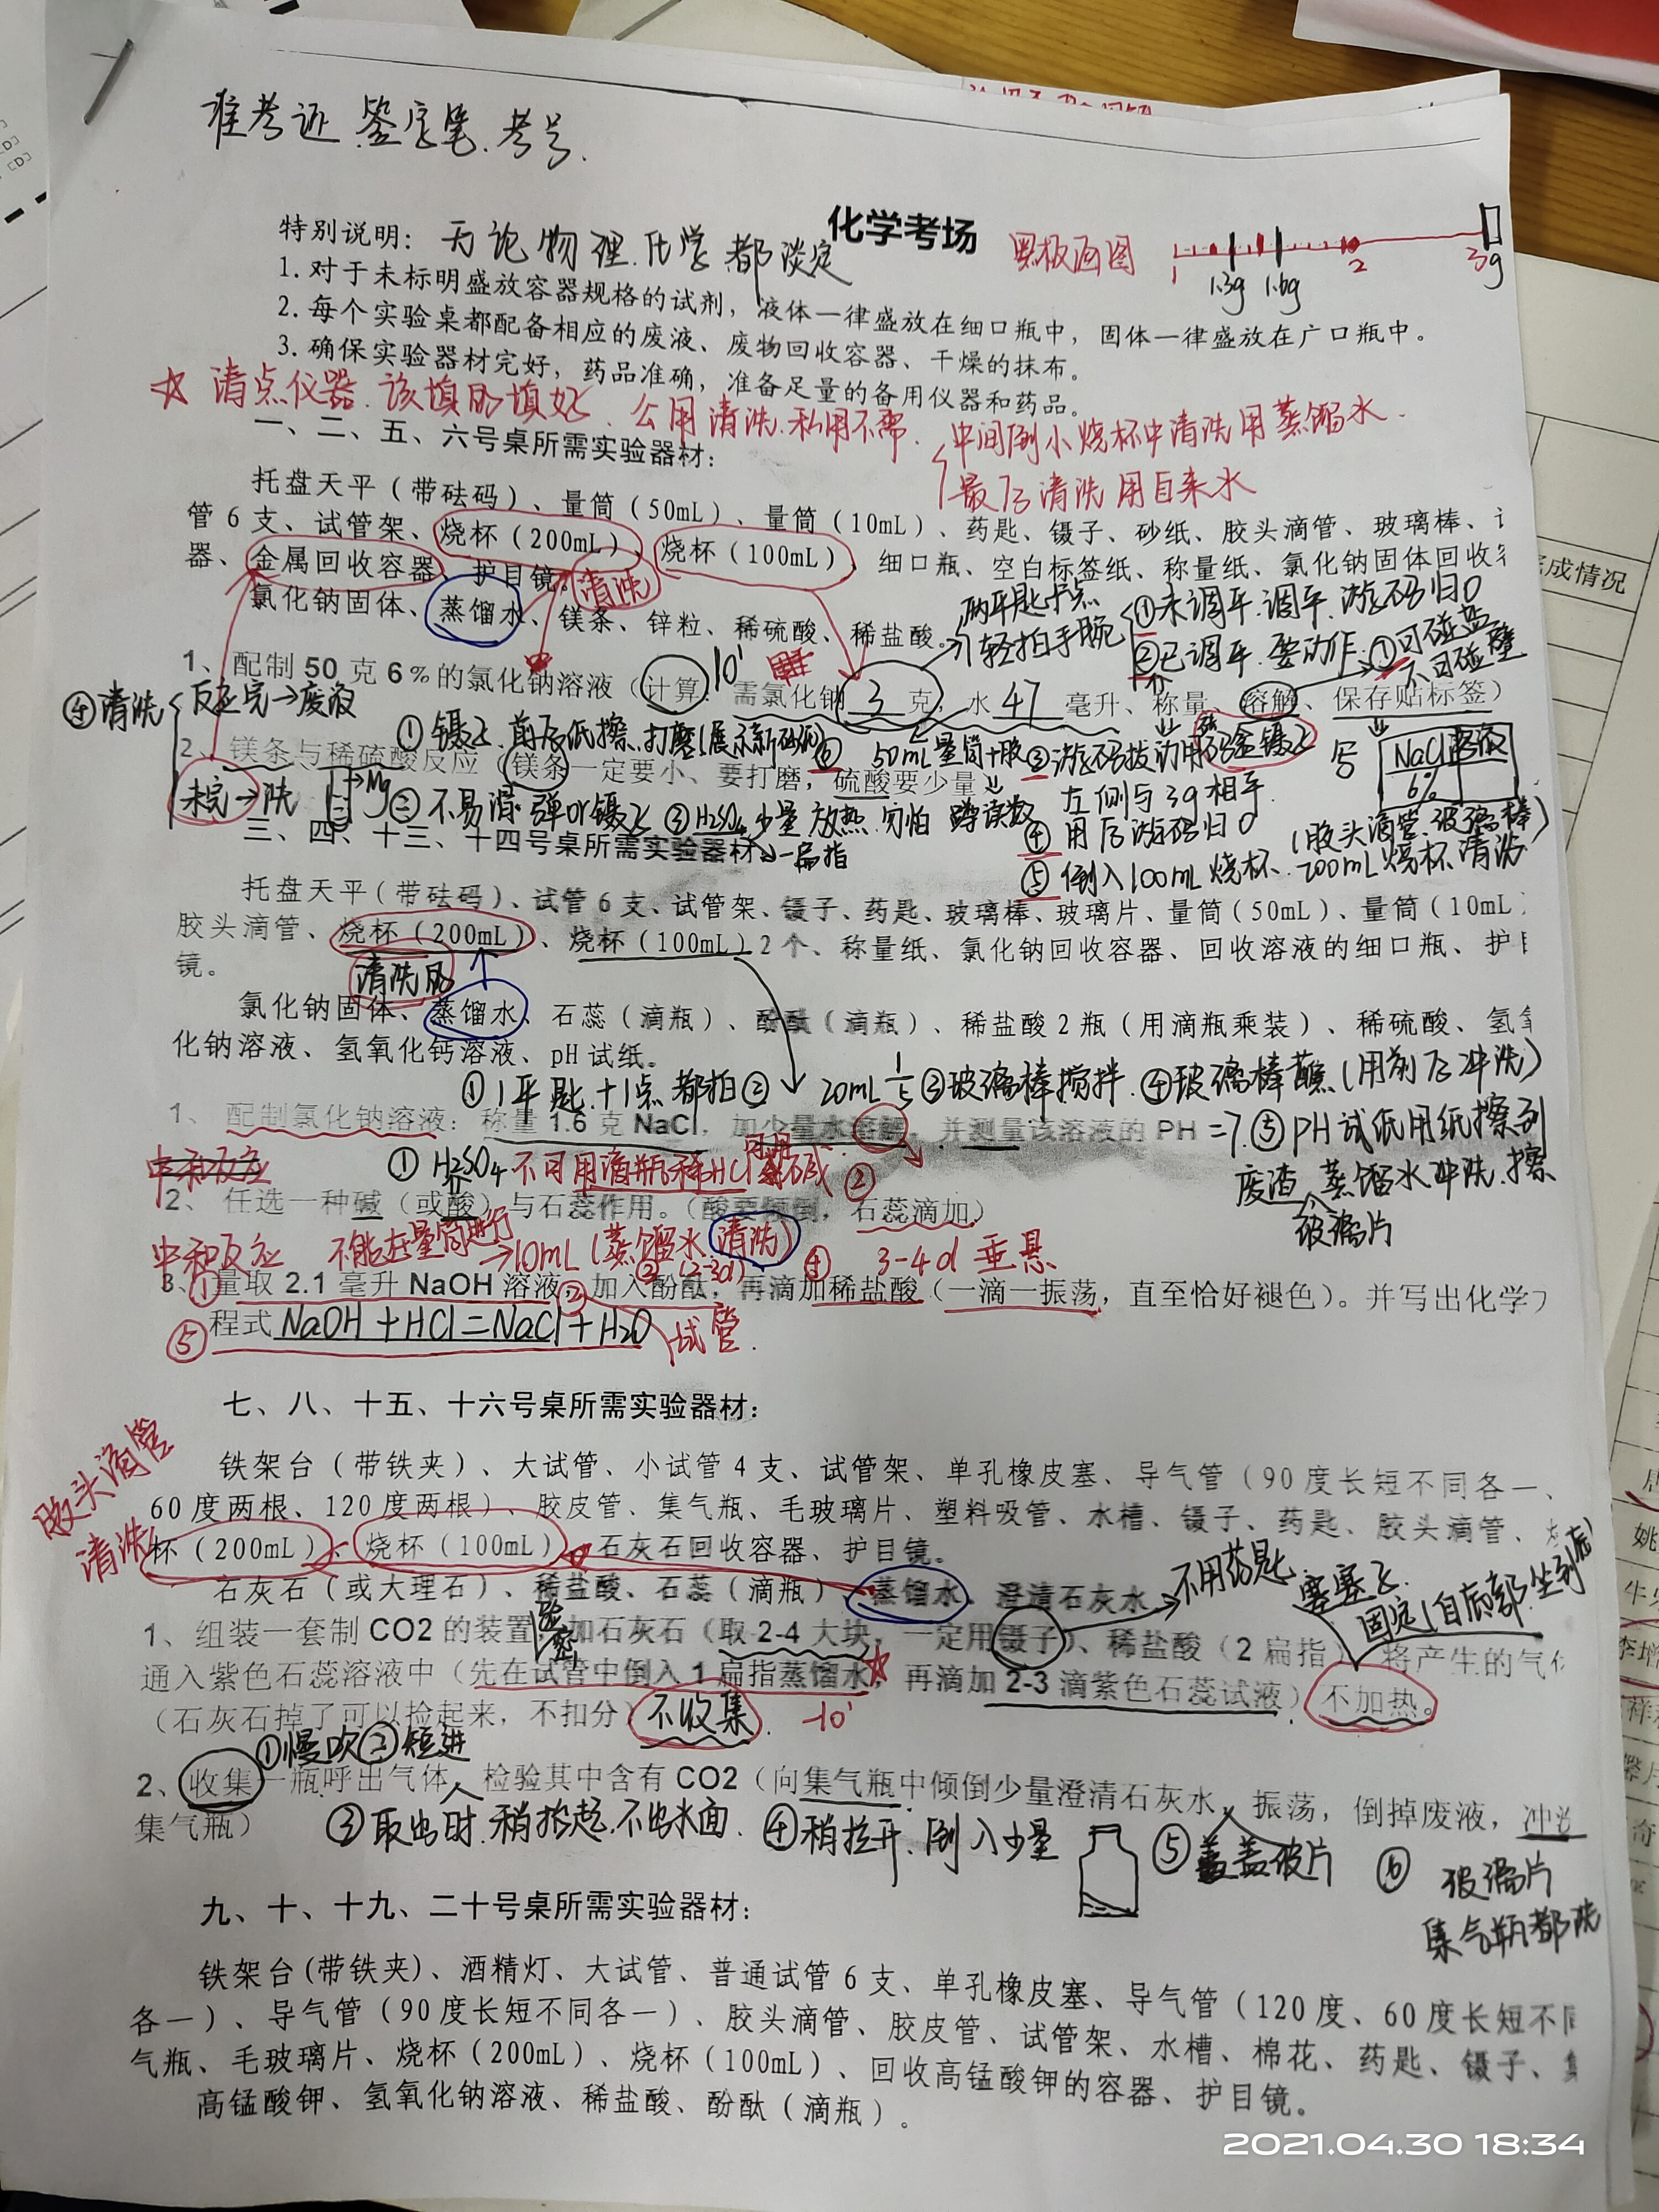 准考证.签字笔.考号.
化学考场
特别说明：无论物理.化学都淡定
黑板画图
1 1.3g 1.6g 2 3g
1.对于未标明盛放容器规格的试剂，液体一律盛放在细口瓶中，固体一律盛放在广口瓶中。
2.每个实验桌都配备相应的废液、废物回收容器、干燥的抹布。
3.确保实验器材完好，药品准确，准备足量的备用仪器和药品。
☆ 清点仪器.该填的填好.公用清洗.私用不需.
中间倒小烧杯中清洗用蒸馏水.
最后清洗用自来水
一、二、五、六号桌所需实验器材：
托盘天平（带砝码）、量筒（50mL）、量筒（10mL）、药匙、镊子、砂纸、胶头滴管、玻璃棒、
管6支、试管架、烧杯（200mL）、烧杯（100mL）、细口瓶、空白标签纸、称量纸、氯化钠固体回收
器、金属回收容器、护目镜。
清洗
氯化钠固体、蒸馏水、镁条、锌粒、稀硫酸、稀盐酸。
两平匙+点
轻拍手腕
①未调平.调平.游码归0
②已调平.要动作.
①可碰盐
不可碰壁
1、配制50克6%的氯化钠溶液（计算：需氯化钠3克，水47毫升、称量、溶解、保存贴标签）
10'
④清洗
反应完→废液
未完→
①镊子.前后纸擦.打磨(展示新砂纸)
50mL量筒+胶
③游码拨动用砝码盒镊子
左侧与3g相平
写
NaCl溶液
6%
2、镁条与稀硫酸反应（镁条一定要小、要打磨，硫酸要少量
→Mg
②不易滑.弹or镊子
③H2SO4少量 放热.勿怕
蹲读数
一扁指
④用后游码归0
⑤倒入100mL烧杯.200mL烧杯清洗
(胶头滴管.玻璃棒)
三、四、十三、十四号桌所需实验器材：
托盘天平（带砝码）、试管6支、试管架、镊子、药匙、玻璃棒、玻璃片、量筒（50mL）、量筒（10mL
胶头滴管、烧杯（200mL）、烧杯（100mL）2个、称量纸、氯化钠回收容器、回收溶液的细口瓶、护目
镜。
清洗的
氯化钠固体、蒸馏水、石蕊（滴瓶）、酚酞（滴瓶）、稀盐酸2瓶（用滴瓶乘装）、稀硫酸、氢氧
化钠溶液、氢氧化钙溶液、pH试纸。
①1平匙+1点 都拍②
20mL
③玻璃棒搅拌.④玻璃棒蘸(用前后冲洗)
1、配制氯化钠溶液：称量1.6克NaCl，加少量水溶解，并测量该溶液的PH
=7.⑤PH试纸用纸擦到
废渣
蒸馏水冲洗.擦
玻璃片
中和反应
①H2SO4不可用滴瓶稀HCl
②
2、任选一种碱（或酸）与石蕊作用。（酸要倾倒，石蕊滴加）
中和反应 不能在量筒进行
→10mL(蒸馏水 清洗)
③(2-3d)
④ 3-4d 垂悬
3、①量取2.1毫升NaOH溶液，②加入酚酞，再滴加稀盐酸（一滴一振荡，直至恰好褪色）。并写出化学方
⑤程式 NaOH+HCl=NaCl+H2O
试管.
七、八、十五、十六号桌所需实验器材：
胶头滴管
清洗
铁架台（带铁夹）、大试管、小试管4支、试管架、单孔橡皮塞、导气管（90度长短不同各一、
60度两根、120度两根）、胶皮管、集气瓶、毛玻璃片、塑料吸管、水槽、镊子、药匙、胶头滴管、
杯（200mL）、烧杯（100mL）、石灰石回收容器、护目镜。
石灰石（或大理石）、稀盐酸、石蕊（滴瓶）、蒸馏水、澄清石灰水
不用药匙
塞塞子
固定(自底部.坐到底)
验密
1、组装一套制CO2的装置，加石灰石（取2-4大块，一定用镊子）、稀盐酸（2扁指）、将产生的气体
通入紫色石蕊溶液中（先在试管中倒入1扁指蒸馏水，再滴加2-3滴紫色石蕊试液） 不加热。
（石灰石掉了可以捡起来，不扣分）不收集. -10'
①慢吹②短进
2、收集一瓶呼出气体，检验其中含有CO2（向集气瓶中倾倒少量澄清石灰水，振荡，倒掉废液，冲洗
集气瓶）
③取出时.稍抬起.不出水面.
④稍拉开.倒入少量
⑤盖玻片
⑥ 玻璃片
集气瓶都洗
九、十、十九、二十号桌所需实验器材：
铁架台(带铁夹)、酒精灯、大试管、普通试管6支、单孔橡皮塞、导气管（120度、60度长短不同
各一）、导气管（90度长短不同各一）、胶头滴管、胶皮管、试管架、水槽、棉花、药匙、镊子、集
气瓶、毛玻璃片、烧杯（200mL）、烧杯（100mL）、回收高锰酸钾的容器、护目镜。
高锰酸钾、氢氧化钠溶液、稀盐酸、酚酞（滴瓶）。
完成情况
2021.04.30 18:34